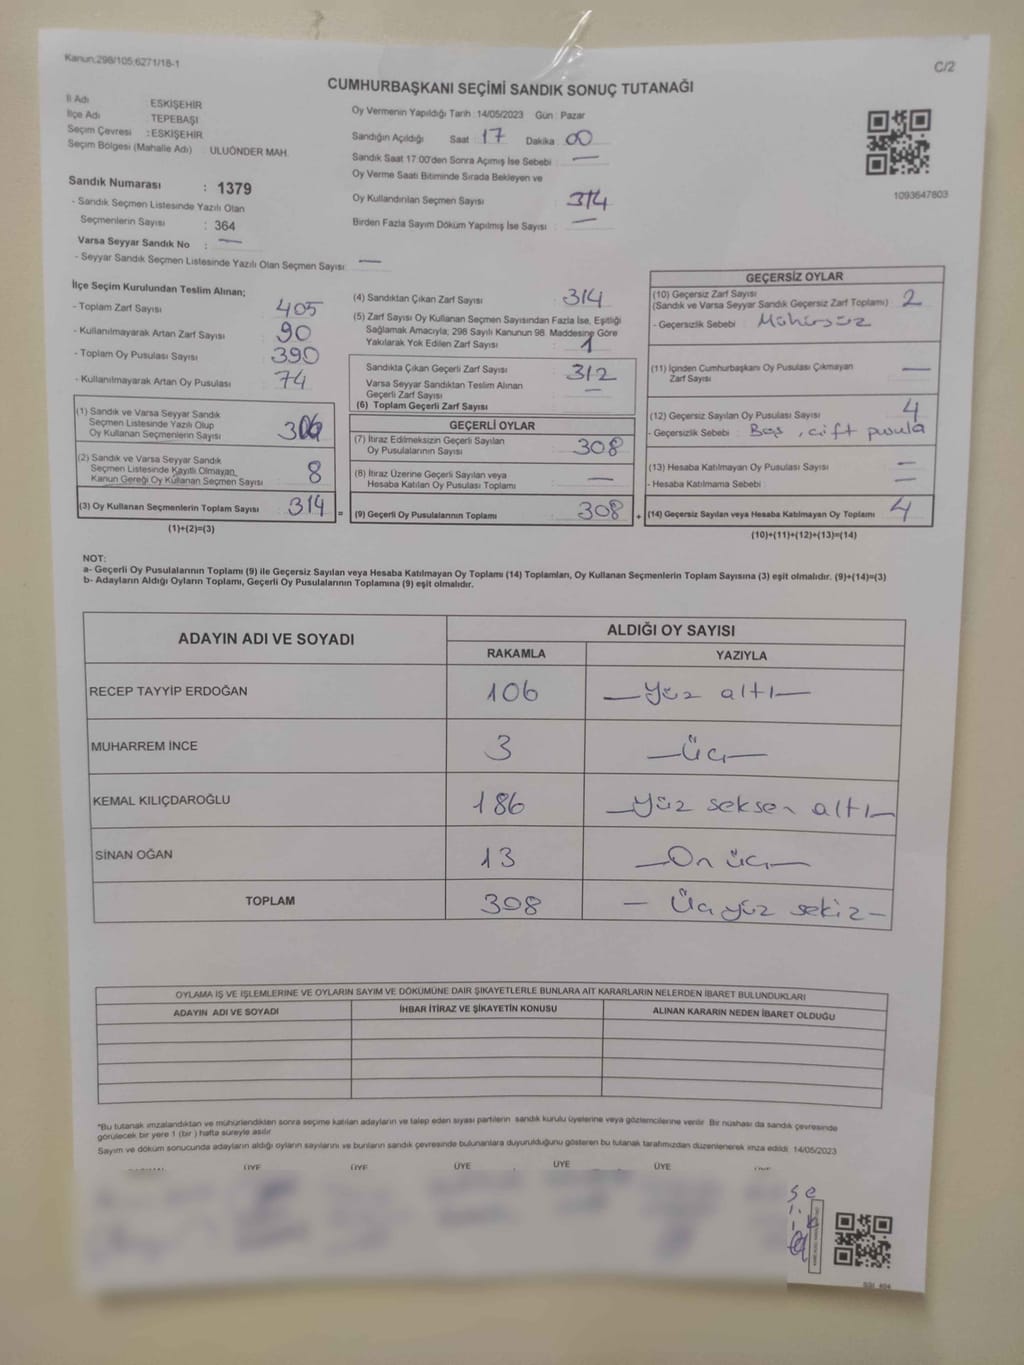 Kanun:298/105;6271/18-1
C/2
CUMHURBAŞKANI SEÇİMİ SANDIK SONUÇ TUTANAĞI
İl Adı : ESKİŞEHİR
İlçe Adı TEPEBAŞI
Seçim Çevresi : ESKİŞEHİR
Seçim Bölgesi (Mahalle Adı) : ULUÖNDER MAH.
Sandık Numarası : 1379
- Sandık Seçmen Listesinde Yazılı Olan
Seçmenlerin Sayısı : 364
Varsa Seyyar Sandık No : —
- Seyyar Sandık Seçmen Listesinde Yazılı Olan Seçmen Sayısı: —
Oy Vermenin Yapıldığı Tarih : 14/05/2023 Gün : Pazar
Sandığın Açıldığı Saat : 17 Dakika : 00
Sandık Saat 17:00'den Sonra Açımış İse Sebebi : —
Oy Verme Saati Bitiminde Sırada Bekleyen ve
Oy Kullandırılan Seçmen Sayısı : 314
Birden Fazla Sayım Döküm Yapılmış İse Sayısı : —
1093647803
İlçe Seçim Kurulundan Teslim Alınan;
- Toplam Zarf Sayısı : 405
- Kullanılmayarak Artan Zarf Sayısı : 90
- Toplam Oy Pusulası Sayısı : 390
- Kullanılmayarak Artan Oy Pusulası : 74
(1) Sandık ve Varsa Seyyar Sandık
Seçmen Listesinde Yazılı Olup
Oy Kullanan Seçmenlerin Sayısı : 306
(2) Sandık ve Varsa Seyyar Sandık
Seçmen Listesinde Kayıtlı Olmayan,
Kanun Gereği Oy Kullanan Seçmen Sayısı : 8
(3) Oy Kullanan Seçmenlerin Toplam Sayısı : 314 =
(1)+(2)=(3)
(4) Sandıktan Çıkan Zarf Sayısı : 314
(5) Zarf Sayısı Oy Kullanan Seçmen Sayısından Fazla İse, Eşitliği
Sağlamak Amacıyla; 298 Sayılı Kanunun 98. Maddesine Göre
Yakılarak Yok Edilen Zarf Sayısı : 1
Sandıkta Çıkan Geçerli Zarf Sayısı : 312
Varsa Seyyar Sandıktan Teslim Alınan
Geçerli Zarf Sayısı : —
(6) Toplam Geçerli Zarf Sayısı :
GEÇERLİ OYLAR
(7) İtiraz Edilmeksizin Geçerli Sayılan
Oy Pusulalarının Sayısı : 308
(8) İtiraz Üzerine Geçerli Sayılan veya
Hesaba Katılan Oy Pusulası Toplamı : —
(9) Geçerli Oy Pusulalarının Toplamı : 308 +
GEÇERSİZ OYLAR
(10) Geçersiz Zarf Sayısı
(Sandık ve Varsa Seyyar Sandık Geçersiz Zarf Toplamı) : 2
- Geçersizlik Sebebi : Mühürsüz
(11) İçinden Cumhurbaşkanı Oy Pusulası Çıkmayan
Zarf Sayısı : —
(12) Geçersiz Sayılan Oy Pusulası Sayısı : 4
- Geçersizlik Sebebi : Boş, çift pusula
(13) Hesaba Katılmayan Oy Pusulası Sayısı : —
- Hesaba Katılmama Sebebi : —
(14) Geçersiz Sayılan veya Hesaba Katılmayan Oy Toplamı : 4
(10)+(11)+(12)+(13)=(14)
NOT:
a- Geçerli Oy Pusulalarının Toplamı (9) ile Geçersiz Sayılan veya Hesaba Katılmayan Oy Toplamı (14) Toplamları, Oy Kullanan Seçmenlerin Toplam Sayısına (3) eşit olmalıdır. (9)+(14)=(3)
b- Adayların Aldığı Oyların Toplamı, Geçerli Oy Pusulalarının Toplamına (9) eşit olmalıdır.
ADAYIN ADI VE SOYADI
ALDIĞI OY SAYISI
RAKAMLA YAZIYLA
RECEP TAYYİP ERDOĞAN 106 —Yüz altı—
MUHARREM İNCE 3 —Üç—
KEMAL KILIÇDAROĞLU 186 —Yüz seksen altı—
SİNAN OĞAN 13 —On üç—
TOPLAM 308 — Üçyüz sekiz—
OYLAMA İŞ VE İŞLEMLERİNE VE OYLARIN SAYIM VE DÖKÜMÜNE DAİR ŞİKAYETLERLE BUNLARA AİT KARARLARIN NELERDEN İBARET BULUNDUKLARI
ADAYIN ADI VE SOYADI İHBAR İTİRAZ VE ŞİKAYETİN KONUSU ALINAN KARARIN NEDEN İBARET OLDUĞU
*Bu tutanak imzalandıktan ve mühürlendikten sonra seçime katılan adayların ve talep eden siyasi partilerin sandık kurulu üyelerine veya gözlemcilerine verilir. Bir nüshası da sandık çevresinde
görülecek bir yere 1 (bir) hafta süreyle asılır.
Sayım ve döküm sonucunda adayların aldığı oyların sayılarını ve bunların sandık çevresinde bulunanlara duyurulduğunu gösteren bu tutanak tarafımızdan düzenlenerek imza edildi. 14/05/2023
ÜYE ÜYE ÜYE ÜYE ÜYE